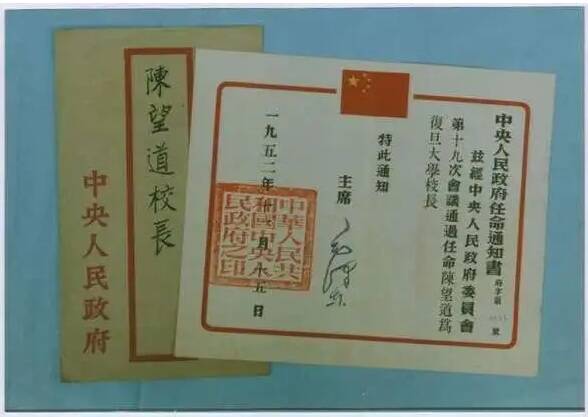 中央人民政府任命通知書 府字第 號
茲經中央人民政府委員會
第十九次會議通過任命陳望道爲
復旦大學校長
特此通知
主席 毛澤東
一九五二年十一月十五日
中華人民共
和國中央人
民政府之印
陳望道校長
中央人民政府